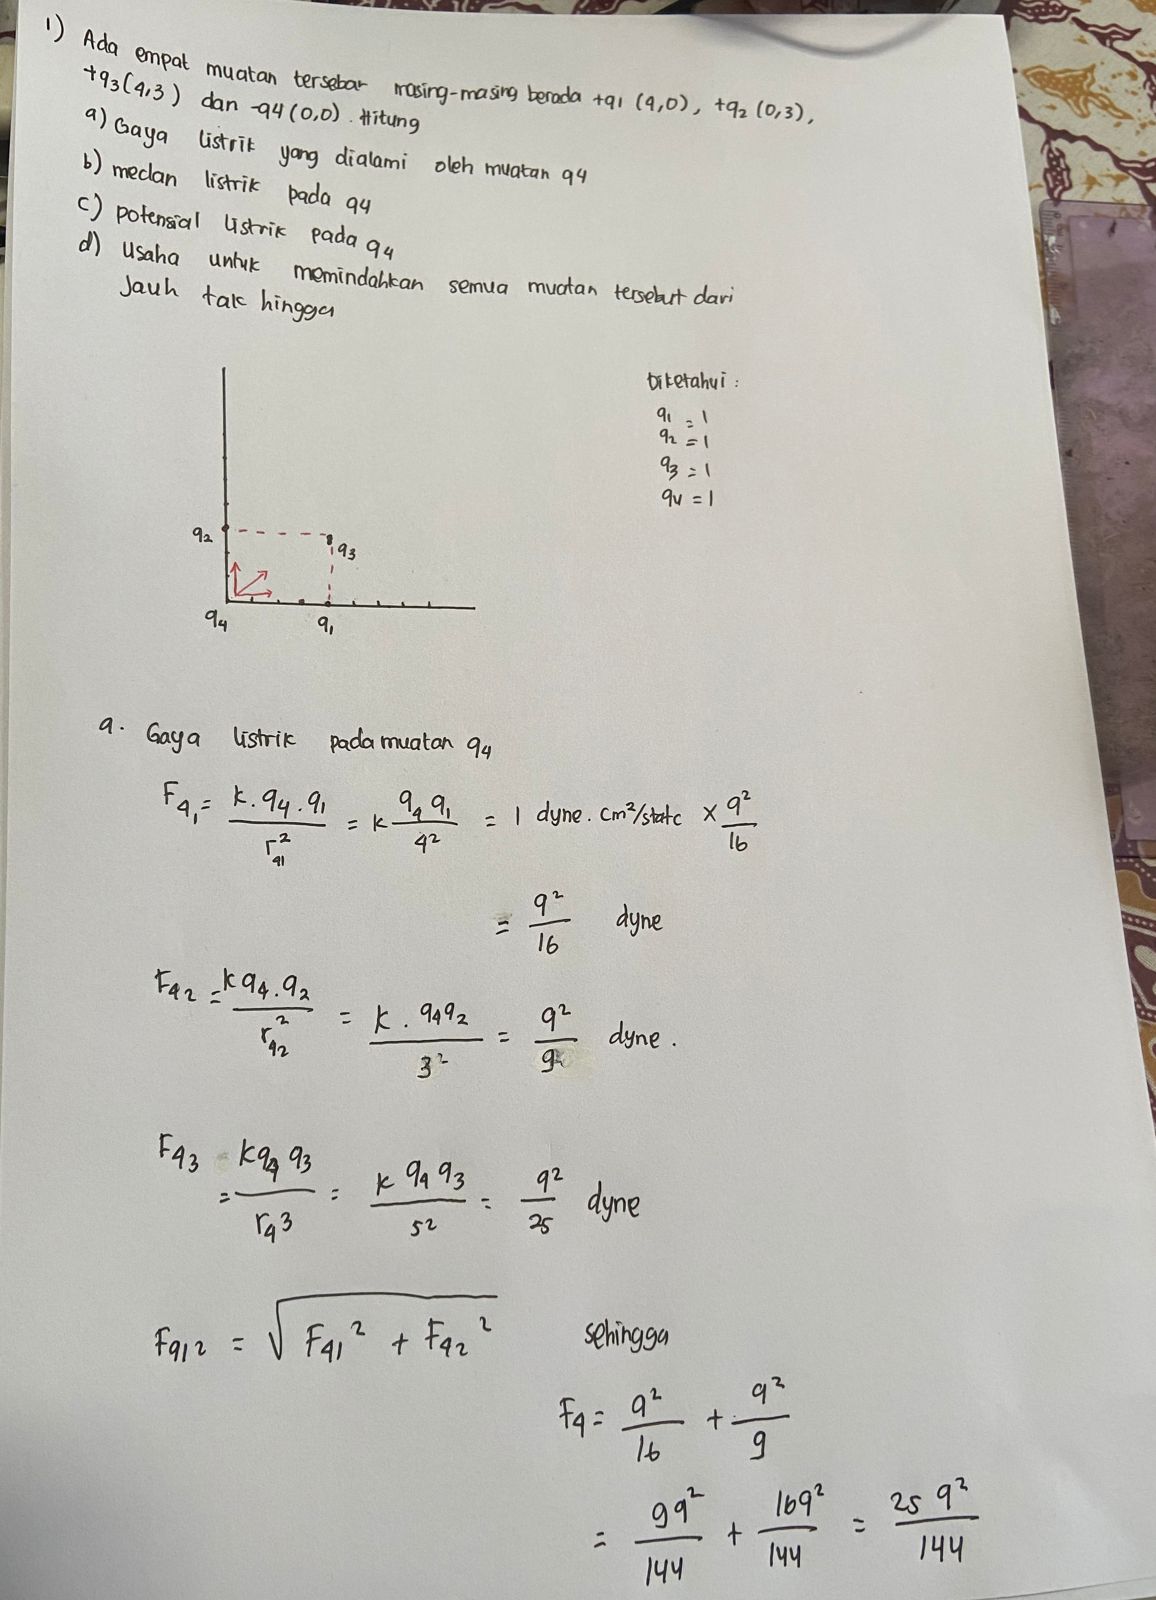 1) Ada empat muatan tersebar masing-masing berada +q1 (4,0), +q2 (0,3),
+q3(4,3) dan -q4(0,0). Hitung
a) Gaya listrik yang dialami oleh muatan q4
b) medan listrik pada q4
c) potensial listrik pada q4
d) Usaha untuk memindahkan semua muatan tersebut dari
Jauh tak hingga
Diketahui :
q1 = 1
q2 = 1
q3 = 1
q4 = 1
q2
q3
q4
q1
a. Gaya listrik pada muatan q4
F41 = k.q4.q1 / r41² = k q4 q1 / 4² = 1 dyne.cm²/statc × q²/16
= q²/16 dyne
F42 = k q4.q2 / r42² = k. q4q2 / 3² = q²/9 dyne.
F43 = k q4 q3 / r43 = k q4 q3 / 5² = q²/25 dyne
F412 = √(F41² + F42²) sehingga
F4 = q²/16 + q²/9
= 9q²/144 + 16q²/144 = 25 q²/144